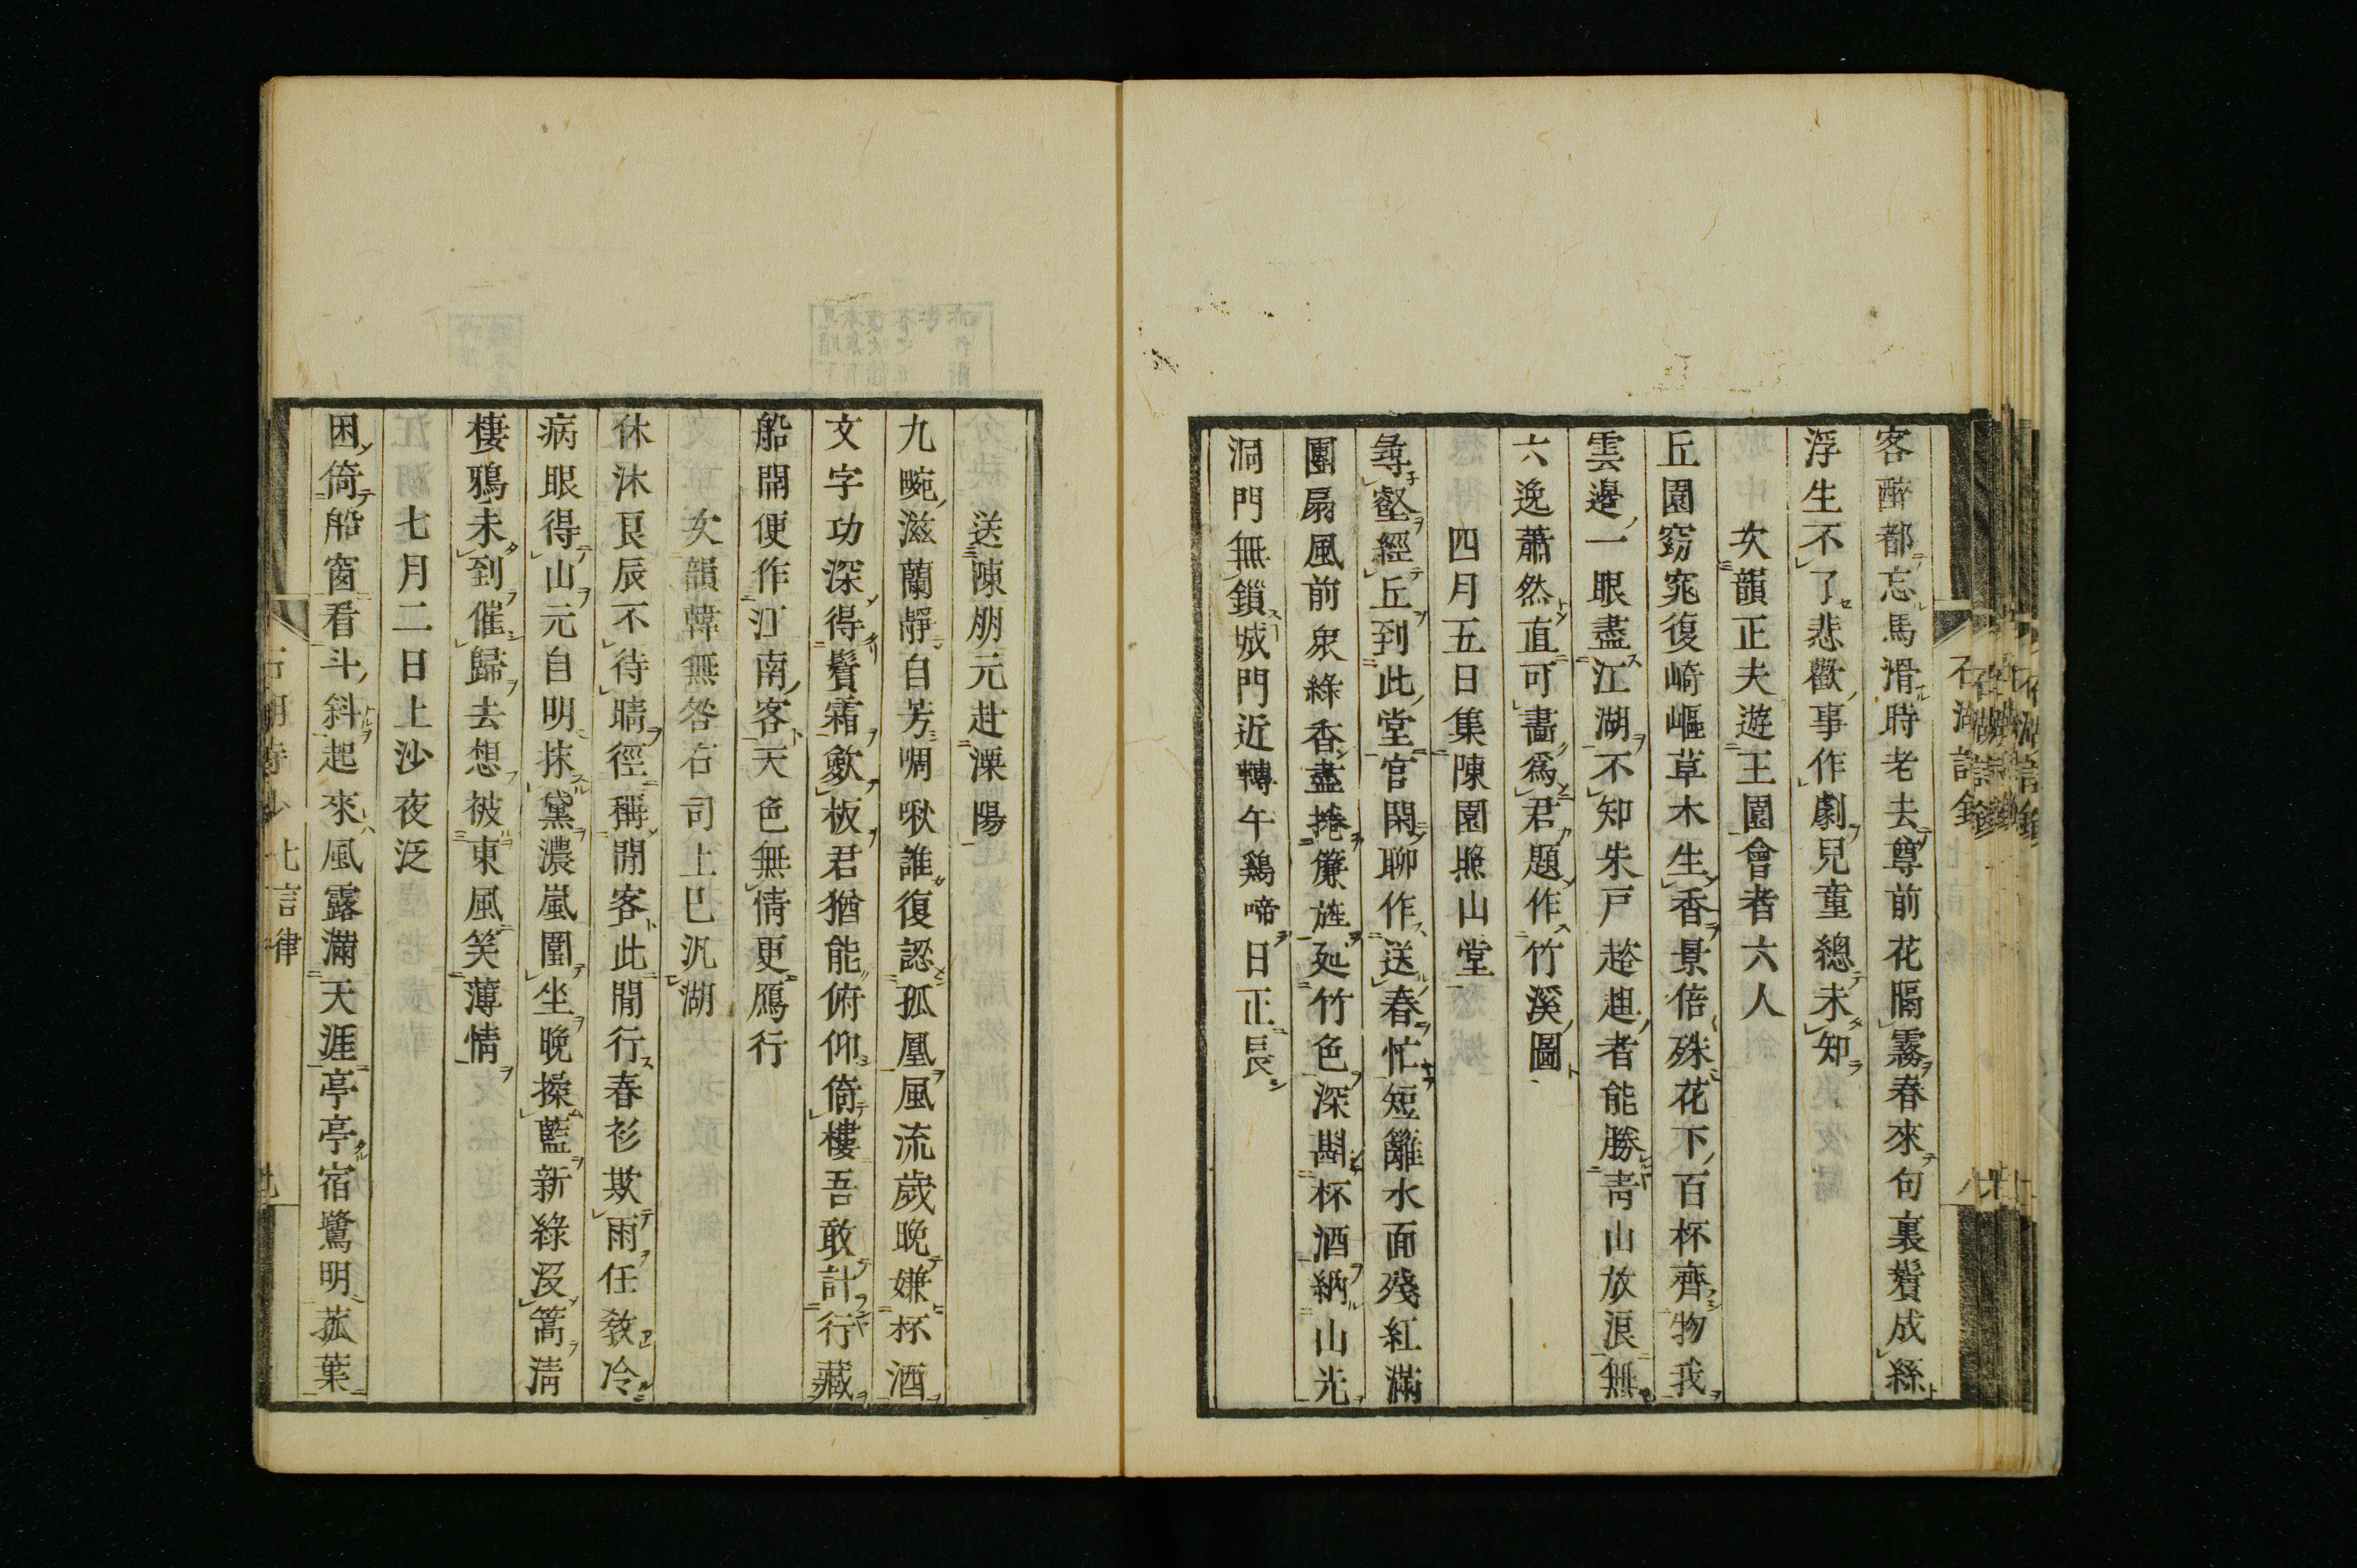 客醉都忘馬滑時老去尊前花隔霧春來句裏鬢成絲
浮生不了悲歡事作劇兒童總未知
次韻正夫遊王園會者六人
丘園窈窕復崎嶇草木生香景倍殊花下百杯齊物我
雲邊一眼盡江湖不知朱戶趁趄者能勝青山放浪無
六逸蕭然直可畫爲君題作竹溪圖
四月五日集陳園照山堂
尋壑經丘到此堂官閑聊作送春忙短籬水面殘紅滿
團扇風前衆綠香盡捲簾旌延竹色深斟杯酒納山光
洞門無鎖城門近轉午鷄啼日正長
送陳朋元赴溧陽
九畹滋蘭靜自芳啁啾誰復認孤凰風流歲晚嫌杯酒
文字功深得鬢霜斂板君猶能俯仰倚樓吾敢計行藏
船開便作江南客天色無情更雁行
次韻韓無咎右司上巳汎湖
休沐良辰不待晴徑稱閒客此閒行春衫欺雨任教冷
病眼得山元自明抹黛濃嵐圍坐晚操藍新綠沒篙淸
棲鴉未到催歸去想被東風笑薄情
七月二日上沙夜泛
困倚船窗看斗斜起來風露滿天涯亭亭宿鷺明菰葉
七言律